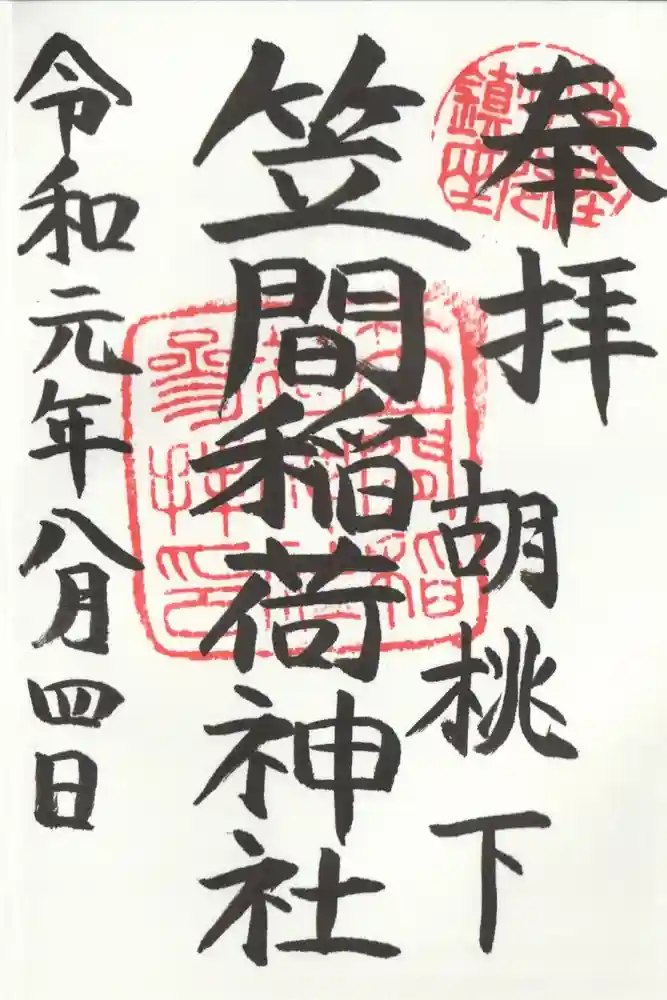 奉拝
胡桃下
笠間稲荷神社
令和元年八月四日